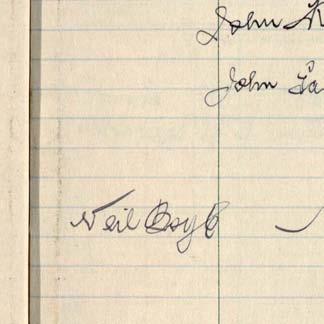 John
John
Neil Boyle